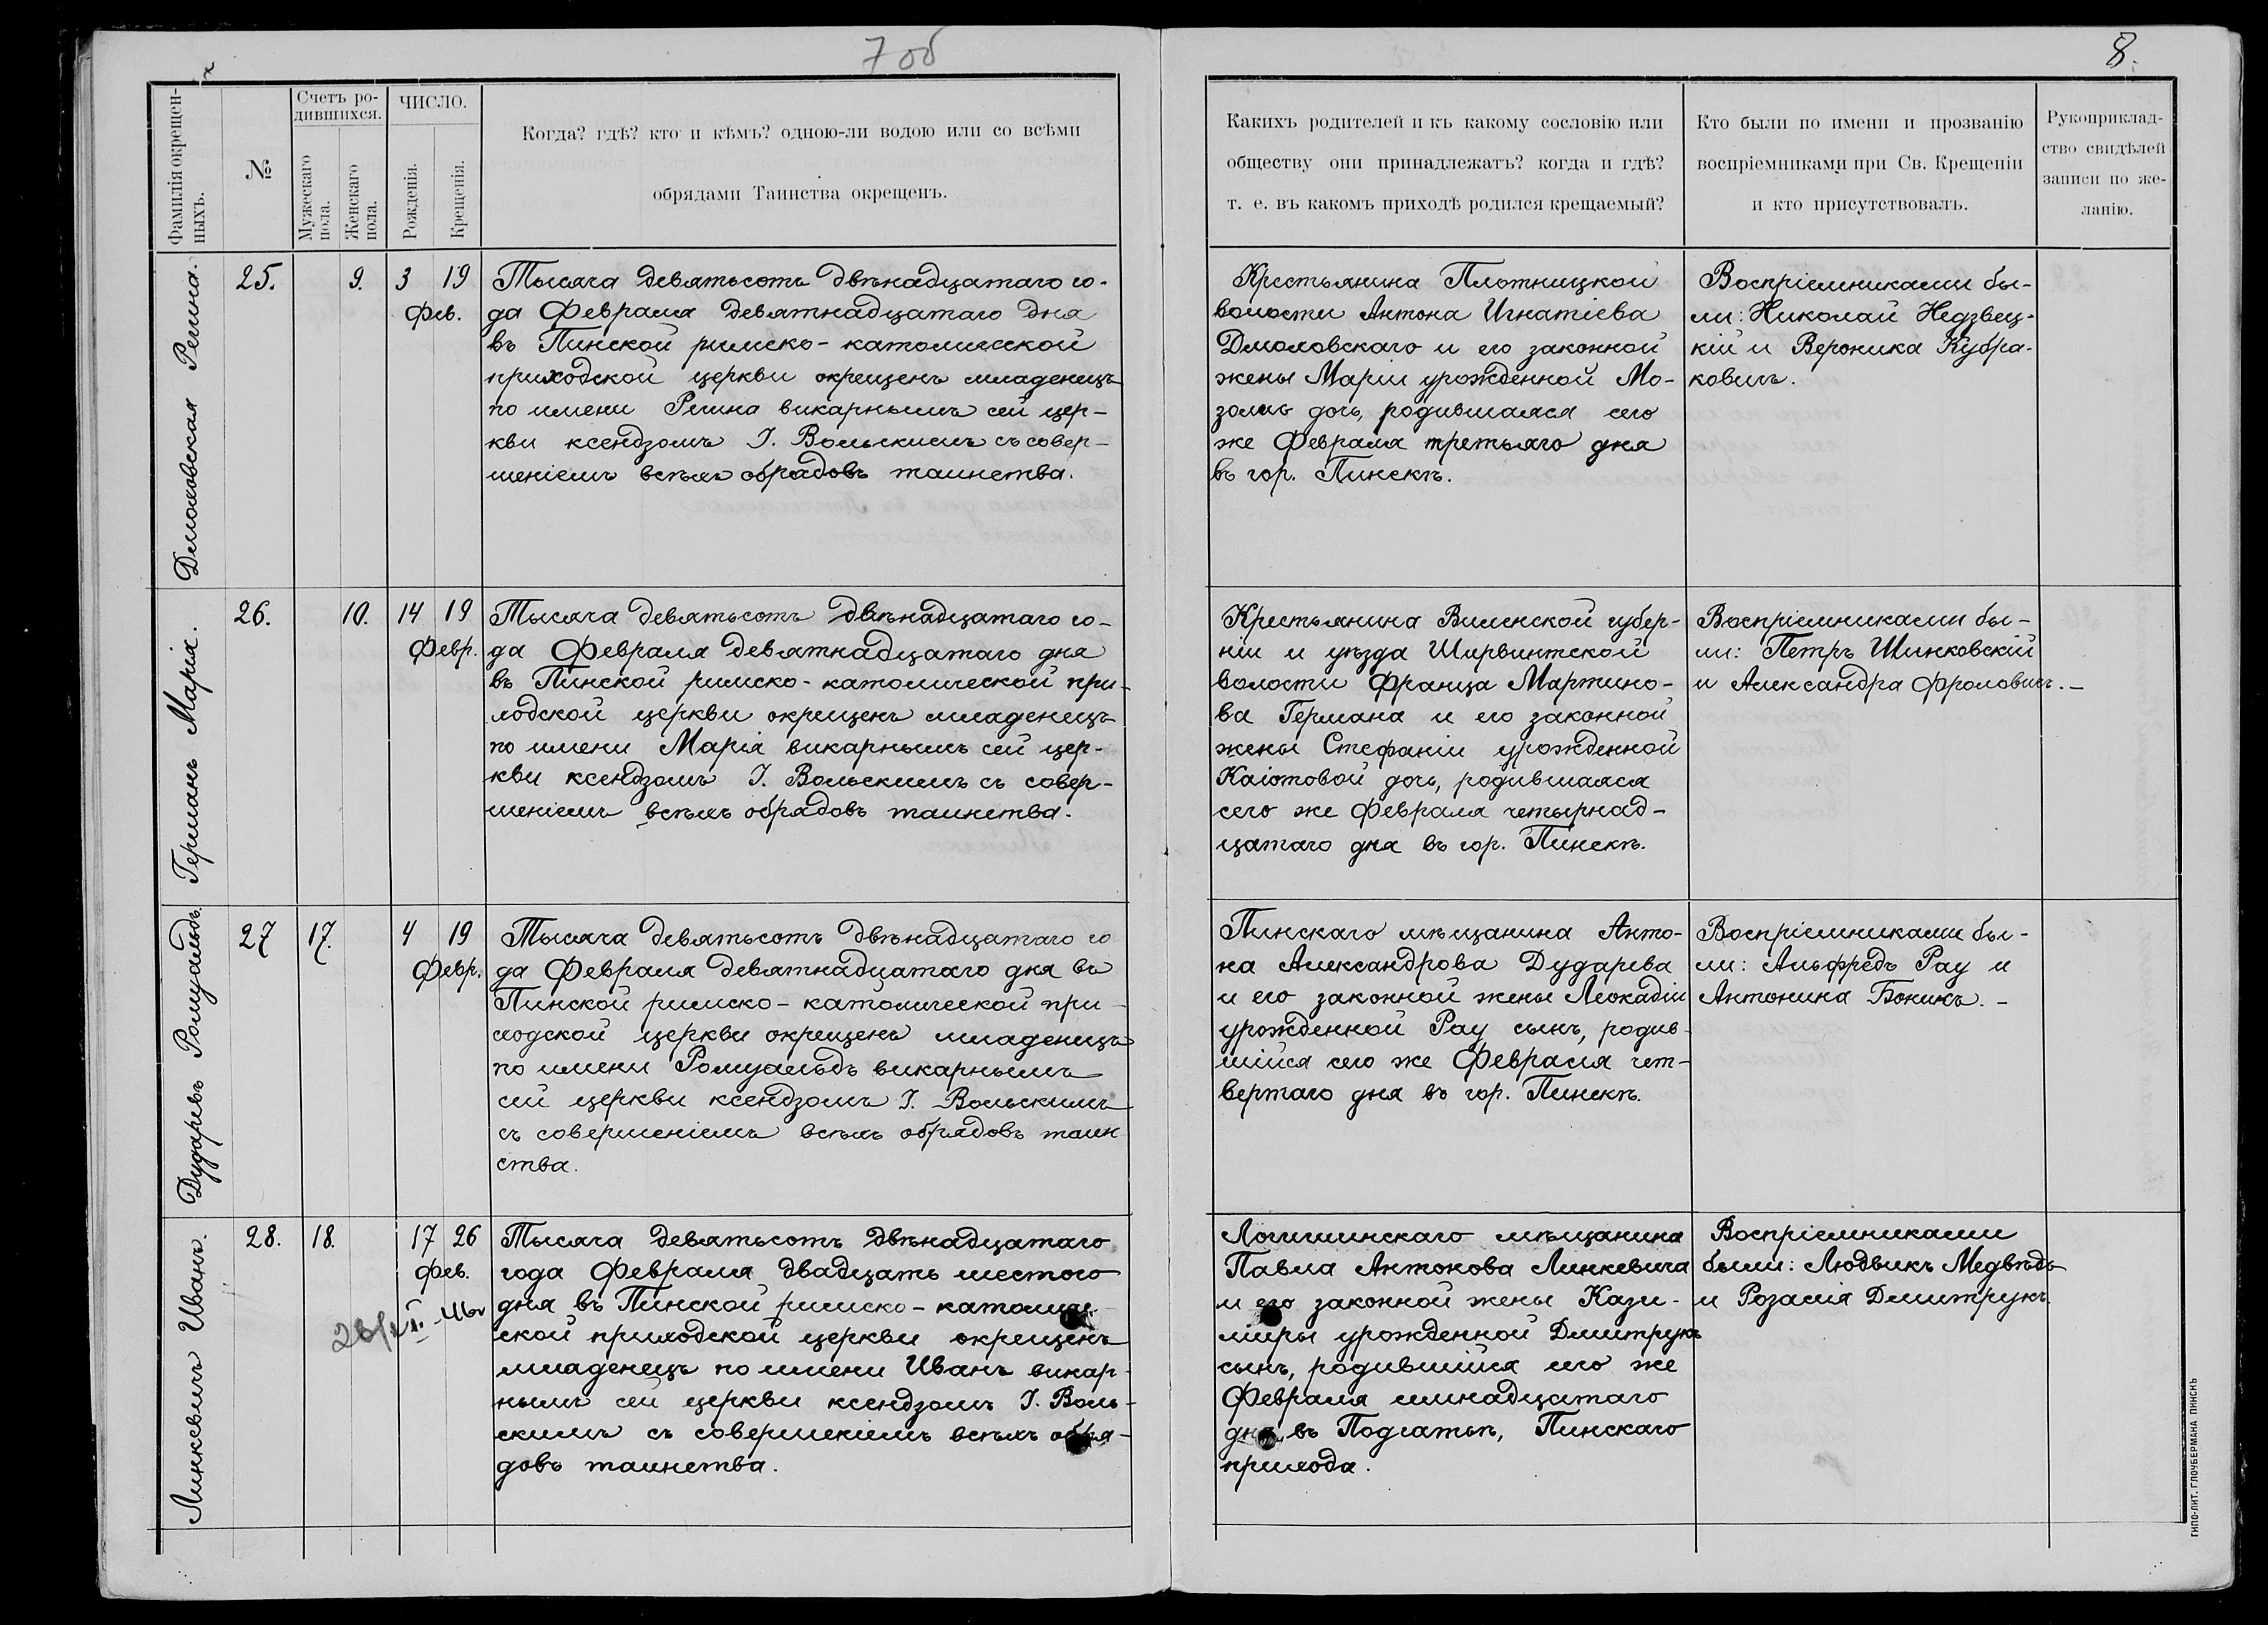 7 об
8.
Фамилія окрещен-
ныхъ.
№
Счетъ ро-
дившихся.
Мужескаго
пола.
Женскаго
пола.
ЧИСЛО.
Рожденія.
Крещенія.
Когда? гдѣ? кто и кѣмъ? одною-ли водою или со всѣми
обрядами Таинства окрещенъ.
Какихъ родителей и къ какому сословію или
обществу они принадлежатъ? когда и гдѣ?
т. е. въ какомъ приходѣ родился крещаемый?
Кто были по имени и прозванію
воспріемниками при Св. Крещеніи
и кто присутствовалъ.
Рукоприклад-
ство свидѣлей
записи по же-
ланію.
Дмоховская Регина.
25.
9.
3 19
Фев.
Тысяча девятьсотъ двѣнадцатаго го-
да Февраля девятнадцатаго дня
въ Пинской римско-католической
приходской церкви окрещенъ младенецъ
по имени Регина викарнымъ сей цер-
кви ксендзомъ І. Вольскимъ съ совер-
шеніемъ всѣхъ обрядовъ таинства.
Крестьянина Плотницкой
волости Антона Игнатіева
Дмоховскаго и его законной
жены Маріи урожденной Мо-
золь дочь, родившаяся сего
же Февраля третьяго дня
въ гор. Пинскѣ.
Воспріемниками бы-
ли: Николай Недзвец-
кій и Вероника Кубра-
ковичъ.
Германъ Марія.
26.
10.
14 19
Февр.
Тысяча девятьсотъ двѣнадцатаго го-
да Февраля девятнадцатаго дня
въ Пинской римско-католической при-
ходской церкви окрещенъ младенецъ
по имени Марія викарнымъ сей цер-
кви ксендзомъ І. Вольскимъ съ совер-
шеніемъ всѣхъ обрядовъ таинства.
Крестьянина Виленской губер-
ніи и уѣзда Ширвинтской
волости Франца Мартино-
ва Германа и его законной
жены Стефаніи урожденной
Каіотовой дочь, родившаяся
сего же Февраля четырнад-
цатаго дня въ гор. Пинскѣ.
Воспріемниками бы-
ли: Петръ Шинковскій
и Александра Фроловичъ.-
Дударевъ Ромуальдъ.
27
17.
4 19
Февр.
Тысяча девятьсотъ двѣнадцатаго го
да Февраля девятнадцатаго дня въ
Пинской римско-католической при-
ходской церкви окрещенъ младенецъ
по имени Ромуальдъ викарнымъ
сей церкви ксендзомъ І. Вольскимъ
съ совершеніемъ всѣхъ обрядовъ таин
ства.
Пинскаго мѣщанина Анто-
на Александрова Дударева
и его законной жены Леокадіи
урожденной Рау сынъ, родив-
шійся сего же Февраля чет-
вертаго дня въ гор. Пинскѣ.
Воспріемниками бы-
ли: Альфредъ Рау и
Антонина Боникъ.-
Линкевичъ Иванъ.
28.
18.
17 26
Фев.
Тысяча девятьсотъ двѣнадцатаго
года Февраля двадцать шестого
дня въ Пинской римско-католиче
ской приходской церкви окрещенъ
младенецъ по имени Иванъ викар-
нымъ сей церкви ксендзомъ І. Воль-
скимъ съ совершеніемъ всѣхъ обря-
довъ таинства.
Логишинскаго мѣщанина
Павла Антонова Линкевича
и его законной жены Кази-
миры урожденной Дмитрукъ
сынъ, родившійся сего же
Февраля семнадцатаго
дня въ Подгатьѣ, Пинскаго
прихода.
Воспріемниками
были: Людвикъ Медвѣдь
и Розалія Дмитрукъ.
ТИПО-ЛИТ. ГЛОУБЕРМАНА ПИНСКЪ